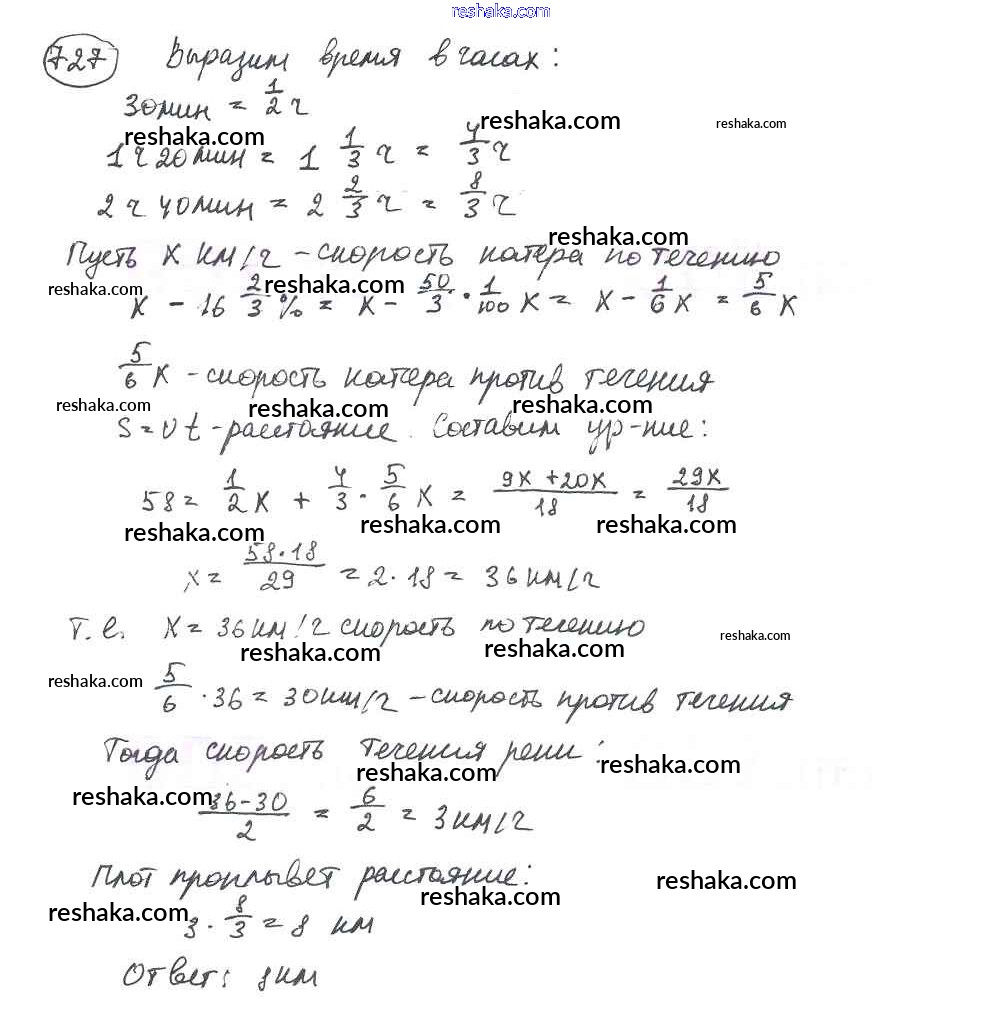 reshaka.com
727 Выразим время в часах:
30мин = 1/2 ч
reshaka.com reshaka.com reshaka.com
1ч 20мин = 1 1/3 ч = 4/3 ч
2ч 40мин = 2 2/3 ч = 8/3 ч
reshaka.com
Пусть x км/ч - скорость катера по течению
reshaka.com reshaka.com
x - 16 2/3 % = x - 50/3 · 1/100 x = x - 1/6 x = 5/6 x
5/6 x - скорость катера против течения
reshaka.com reshaka.com reshaka.com
S = vt - расстояние. Составим ур-ние:
58 = 1/2 x + 4/3 · 5/6 x = 9x + 20x / 18 = 29x / 18
reshaka.com reshaka.com reshaka.com
x = 58·18 / 29 = 2·18 = 36 км/ч
т.е. x = 36 км/ч скорость по течению
reshaka.com reshaka.com reshaka.com
reshaka.com
5/6 · 36 = 30 км/ч - скорость против течения
Тогда скорость течения реки:
reshaka.com reshaka.com
reshaka.com
36-30 / 2 = 6/2 = 3 км/ч
Плот проплывет расстояние:
reshaka.com reshaka.com
reshaka.com
3 · 8/3 = 8 км
Ответ: 8км